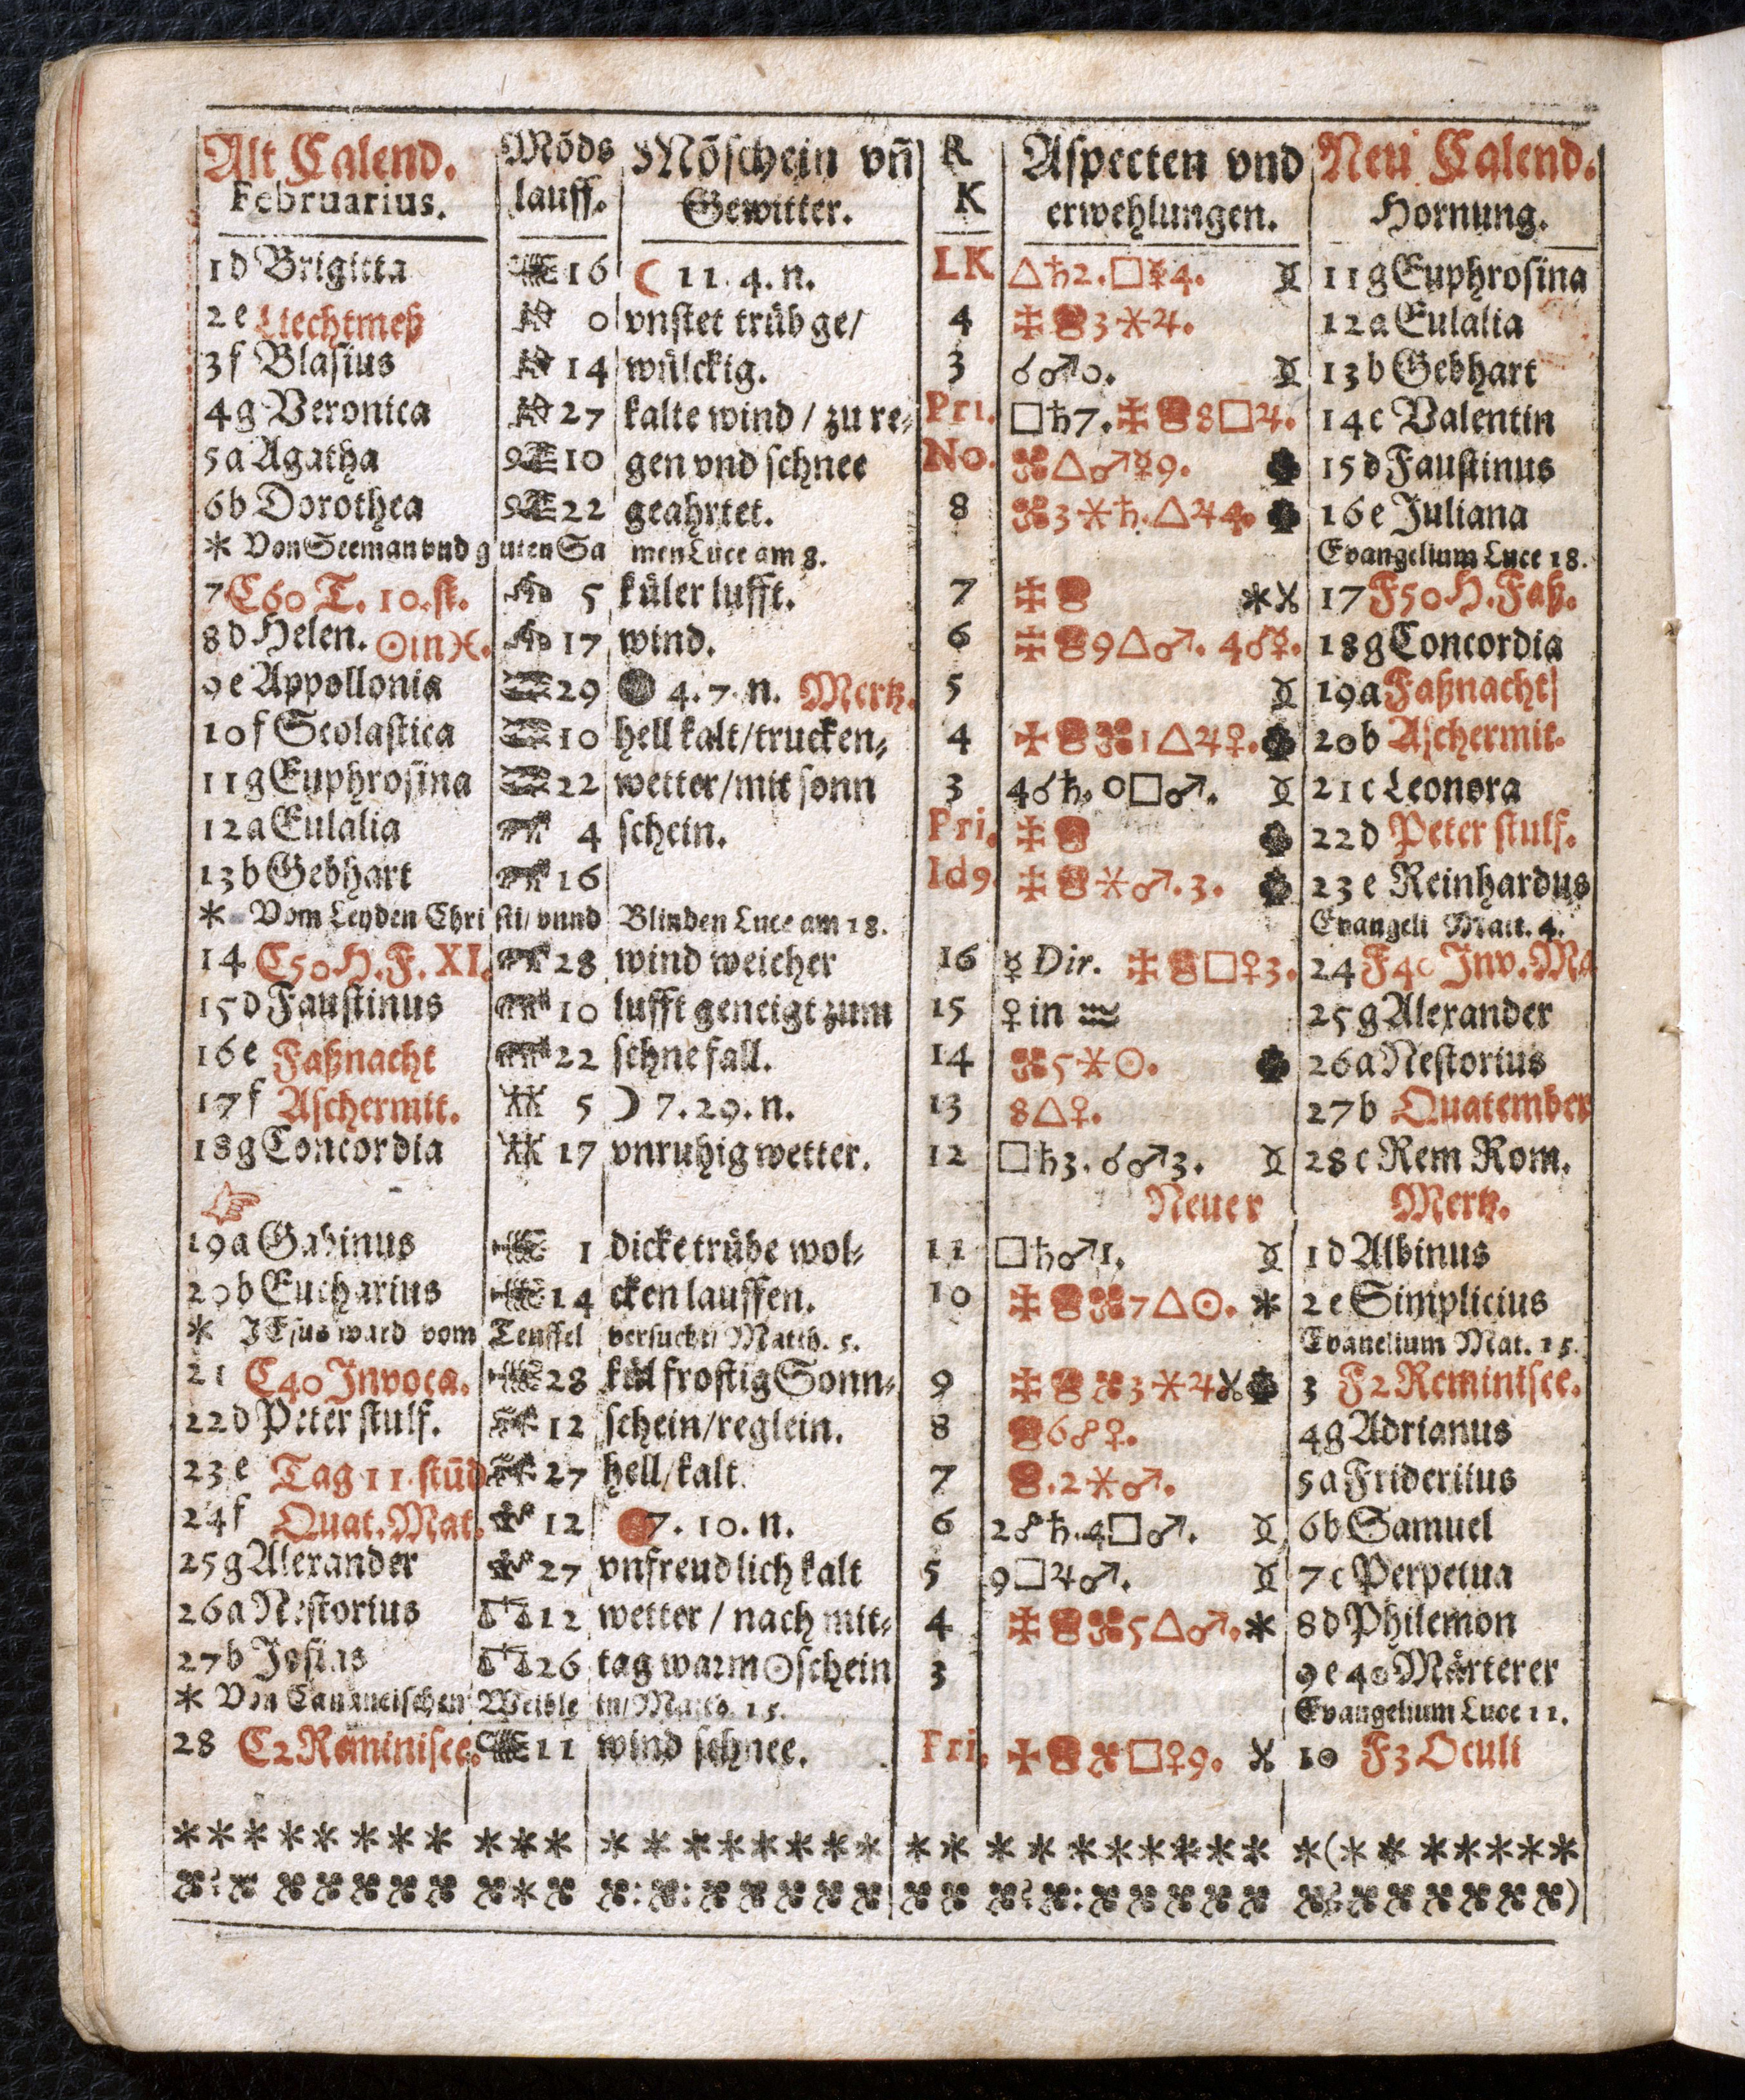 Alt Calend. Mõds Mõschein vñ R Aspecten vnd Neu Calend.
Februarius. lauff. Gewitter. K erwehlungen. Hornung.
1 d Brigitta 16 ☾ 11. 4. n. LK △♄2. □☿4. 11 g Euphrosina
2 e Liechtmeß 0 vnstet trüb ge/ 4 3 ⚹♃. 12 a Eulalia
3 f Blasius 14 wülckig. 3 ☌♂0. 13 b Gebhart
4 g Veronica 27 kalte wind / zu re- Pri. □♄7. 8□♃. 14 c Valentin
5 a Agatha 10 gen vnd schnee No. △♂☿9. 15 d Faustinus
6 b Dorothea 22 geahrtet. 8 3⚹♄. △♃4. 16 e Juliana
* Von Seeman vnd guten Samen Luce am 8. Evangelium Luce 18.
7 C60 T. 10. st. 5 küler lufft. 7 * 17 F50 H. Faß.
8 d Helen. ☉ in ♓. 17 wind. 6 9△♂. 4☍☿. 18 g Concordia
9 e Appollonia 29 ● 4. 7. n. Mertz. 5 19 a Faßnacht
10 f Scolastica 10 hell kalt/trucken- 4 1△♃♀. 20 b Aschermit.
11 g Euphrosina 22 wetter/mit sonn 3 4☌♄. 0□♂. 21 c Leonora
12 a Eulalia 4 schein. Pri. 22 d Peter stulf.
13 b Gebhart 16 Id9. ⚹♂. 3. 23 e Reinhardus
* Vom Leyden Christi/ vnnd Blinden Luce am 18. Evangeli Matt. 4.
14 C50 H. F. XI. 28 wind weicher 16 ☿ Dir. □♀3. 24 F40 Inv. Ma
15 d Faustinus 10 lufft geneigt zum 15 ♀ in ♒ 25 g Alexander
16 e Faßnacht 22 schne fall. 14 5⚹☉. 26 a Nestorius
17 f Aschermit. 5 ☽ 7. 29. n. 13 8△♀. 27 b Quatember
18 g Concordia 17 vnruhig wetter. 12 □♄3. ☌♂3. 28 c Rem Rom.
☞ Neuer Mertz.
19 a Gabinus 1 dicke trübe wol- 11 □♄♂1. 1 d Albinus
20 b Eucharius 14 cken lauffen. 10 7△☉. * 2 e Simplicius
* JEsus ward vom Teuffel versucht/ Matth. 5. Evanelium Mat. 15.
21 C40 Invoca. 28 kül frostig Sonn- 9 3⚹♃ 3 F2 Reminisce.
22 d Peter stulf. 12 schein/reglein. 8 6☍♀. 4 g Adrianus
23 e Tag 11 stũd 27 hell/kalt. 7 .2⚹♂. 5 a Frideriius
24 f Quat. Mat. 12 7. 10. n. 6 2☍♄. 4□♂. 6 b Samuel
25 g Alexander 27 vnfreudlich kalt 5 9□♃♂. 7 c Perpetua
26 a Nestorius 12 wetter / nach mit- 4 5△♂. * 8 d Philemon
27 b Josias 26 tag warm ☉schein 3 9 e 40 Märterer
* Von Cananeischen Weible in/ Matth. 15. Evangelium Luce 11.
28 C2 Reminisce. 11 wind schnee. Pri. □♀9. 10 F3 Oculi